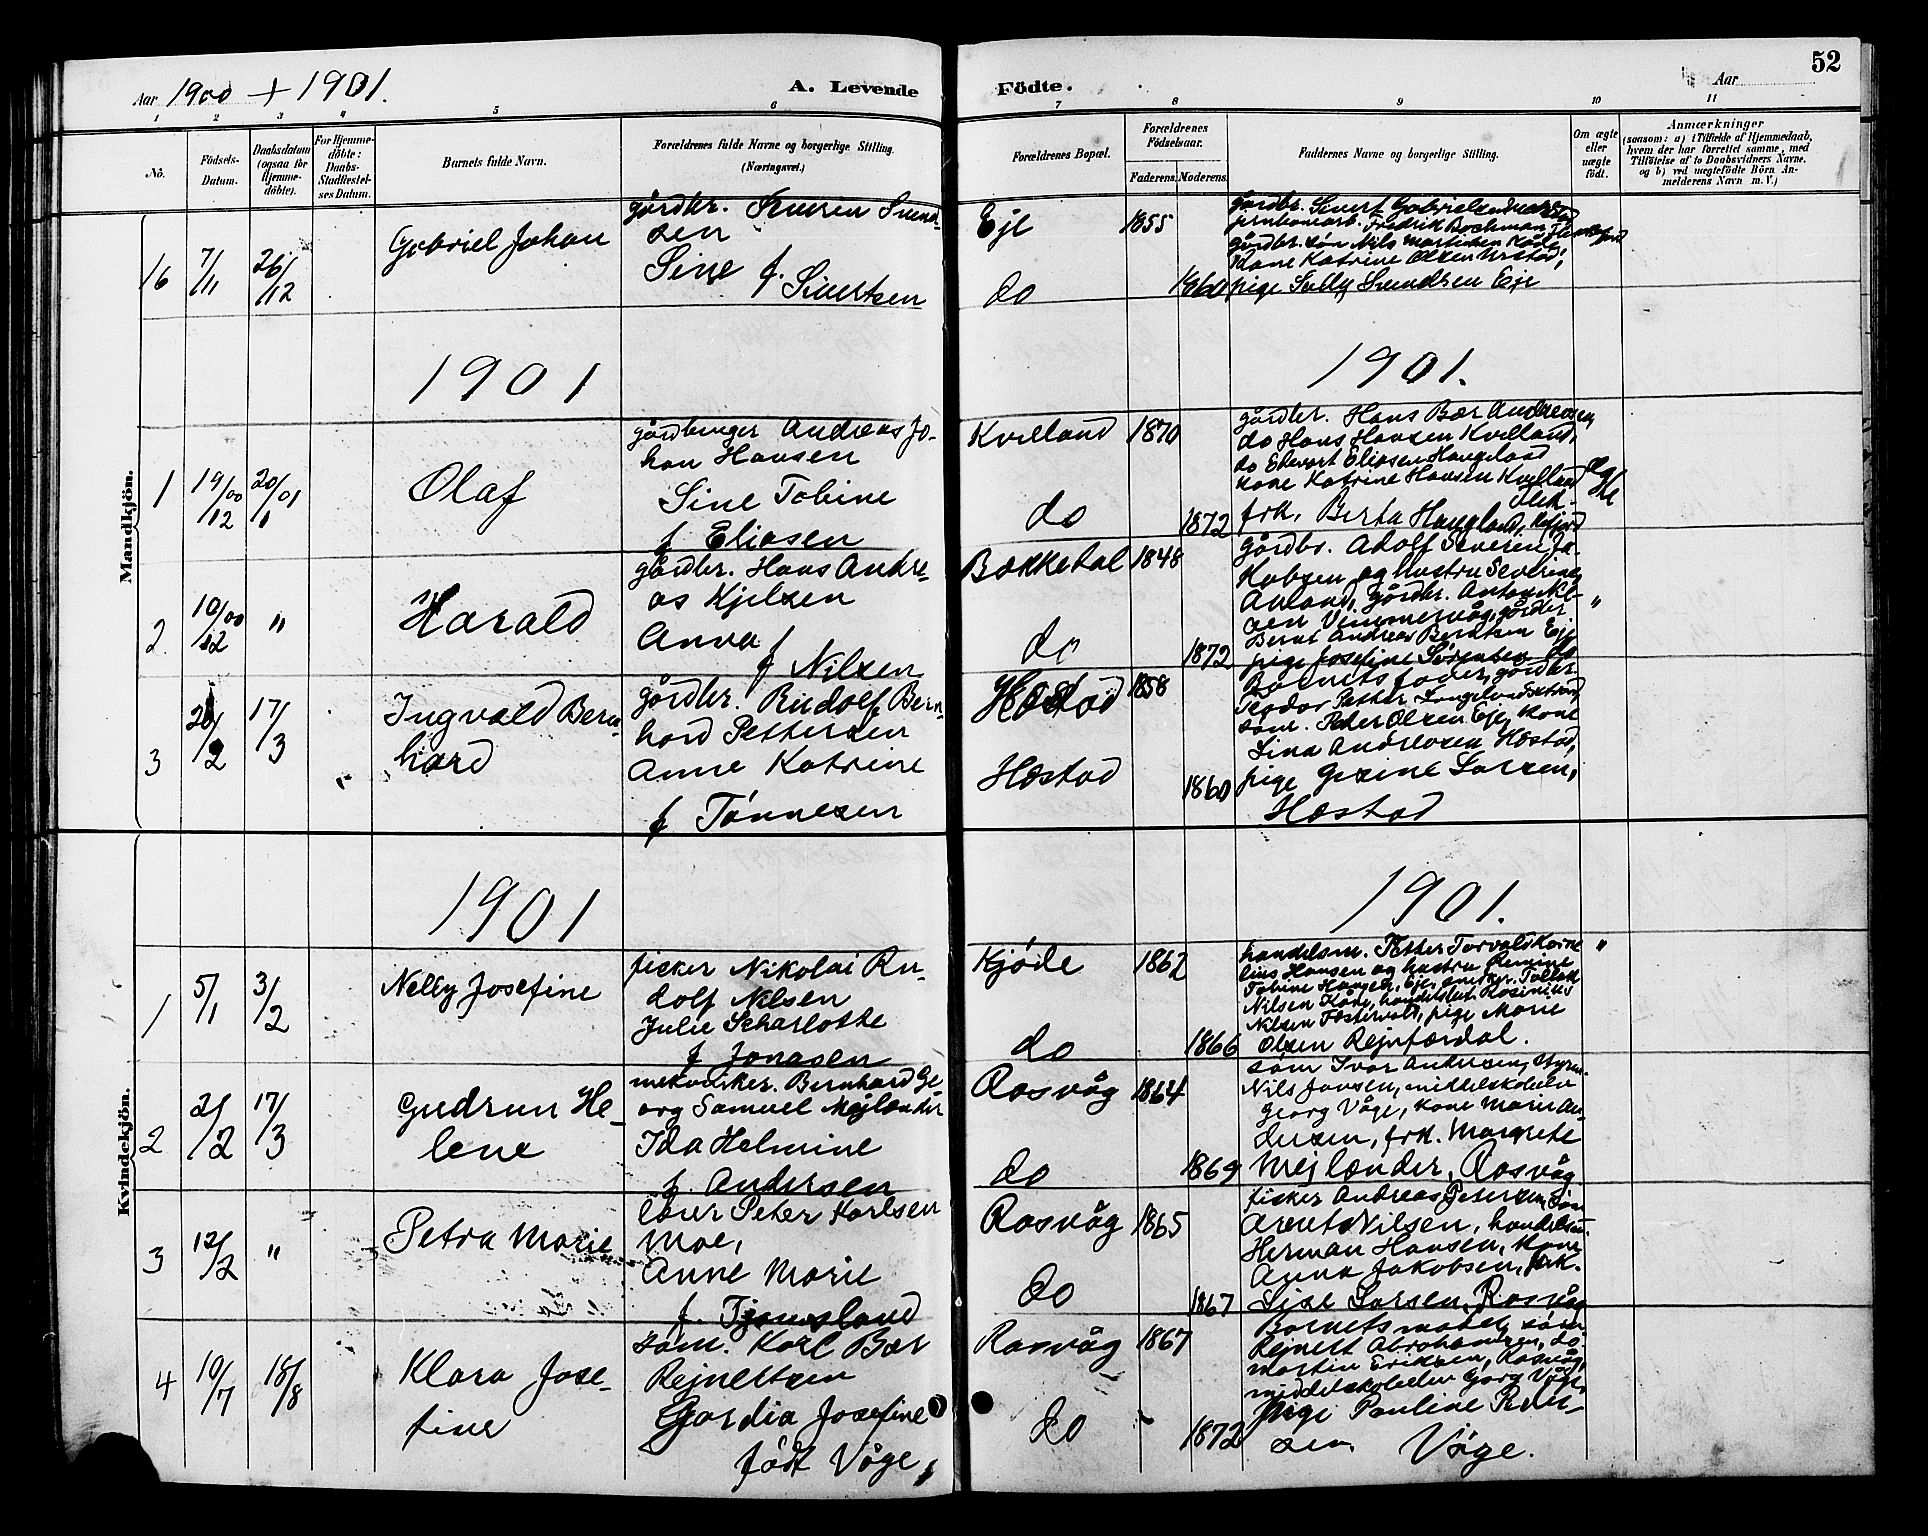 52
Aar 1900 + 1901.
A. Levende
Födte.
Aar
1 2 3 4 5 6 7 8 9 10 11
No.
Födsels-
Datum.
Daabsdatum
(ogsaa for
Hjemme-
döbte).
For Hjemme-
döbte:
Daabs-
Stadfæstel-
ses Datum.
Barnets fulde Navn.
Forældrenes fulde Navne og borgerlige Stilling.
(Næringsvei.)
Forældrenes Bopæl.
Forældrenes
Födselsaar.
Faderens.
Moderens.
Faddernes Navne og borgerlige Stilling.
Om ægte
eller
uægte
födt.
Anmærkninger
(saasom: a) i Tilfælde af Hjemmedaab,
hvem der har forrettet samme, med
Tilföielse af to Daabsvidners Navne.
og b) ved uægtefödte Börn An-
melderens Navn m. V.)
Mandkjön.
16
7/11
26/12
Gabriel Johan
gårdbr. Severin Svend-
sen
Sine f. Sivertsen
Eje
do
1855
1860
gårdbr. Sivert Gabrielsen
Fredrik Bochman
gårdbr. søn Nils Martinsen Kåde,
Kone Katrine Olsen Urstad,
pige Selly Svendsen Eje
1901
1901.
1
19/00 12
20/01 1
Olaf
gårdbruger Andreas Jo-
han Hansen
Sine Tobine
f Eliasen
Kvelland
do
1870
1872
gårdbr. Hans Bær Andreasen,
do Hans Hansen Kvelland,
do Edevart Eliasen Haugeland
kone Katrine Hansen Kvelland
frk. Berta Haugland, Flek-
kefjord
ægte
2
10/00 12
"
Harald
gårdbr. Hans Andre-
as Kjelsen
Anna
f Nilsen
Bakkedal
do
1848
1872
gårdbr. Adolf Severin Ja-
kobsen og hustru Severine
Anland, gårdbr. Anton
sen gårdbr
Bernt Andreas Berntsen Eje
pige Josefine Sørensen do
"
3
20/2
17/3
Ingvald Bern-
hard
gårdbr. Rudolf Bern-
hard Pettersen
Anne Katrine
f Tønnesen
Hæstad
Hæstad
1858
1860
Barnets fader, gårdbr.
Teodor Petter
søm. Peder Olsen Eje, kone
Lina Andreasen Hæstad,
pige Gesine Larsen,
Hæstad
1901
1901.
Kvindekjön.
1
5/1
3/2
Nelly Josefine
fisker Nikolai Ru-
dolf Nilsen
Julie Scharlotte
f Jonasen
Kjøde
do
1862
1866
handelsm. Petter Torvald Korne
lius Hansen og hustru Remine
Tobine Hansen, Eje, Tollak
Nilsen Kåde, handelsbet.
Nilsen pige Marie
Olsen Rejnfærdal.
"
2
2/2
17/3
Gudrun He-
lene
mekaniker. Bernhard Ge-
org Samuel Mejlænder
Ida Helmine
f. Andersen
Rasvåg
do
1864
1869
søm Ivar Andersen, styrm.
Nils Jansen, middelskoleelev
Georg Våge, kone Marie An-
dersen, frk. Margrete
Mejlænder, Rasvåg
3
12/2
"
Petra Marie
Peter Karlsen
Moe,
Anne Marie
f. Tjomsland
Rasvåg
do
1865
1867
fisker Andreas Petersen, søm
Arent Nilsen, handelsm.
Herman Hansen, kone
Anna Jakobsen, frk.
Sise Larsen, Rasvåg
4
10/7
18/8
Klara Jose-
fine
søm. Karl Bær
Rejnertsen
Gardia Josefine
født Våge,
Rasvåg
do
1867
1872
Barnets moder, søm
Rejnert Abrahamsen, do
Martin Eriksen, Rasvåg,
middelskoleelev Georg Våge,
pige Pauline Peder-
sen Våge.